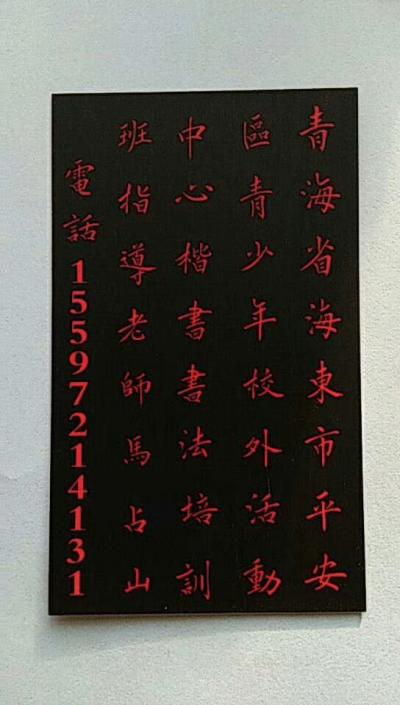 青海省海東市平安
區青少年校外活動
中心楷書書法培訓
班指導老師馬占山
電話15597214131